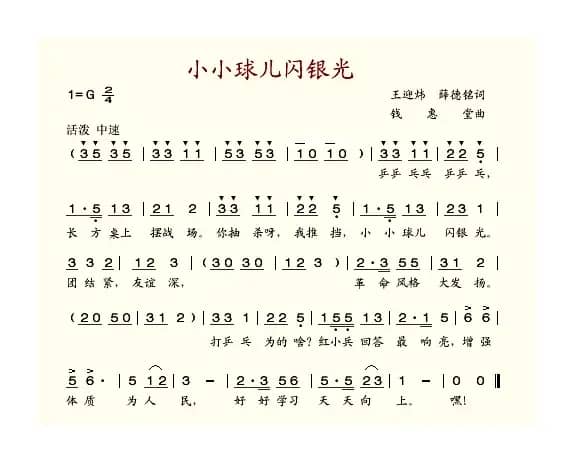 小小球儿闪银光
1=G 2/4
王迎炜 薛德铭词
钱惠堂曲
活泼 中速
( 35 35 | 33 11 | 53 53 | 10 10 ) | 33 11 | 22 5 |
乒乒 乓乓 乒乒乓,
1·5 13 | 21 2 | 33 11 | 22 5 | 1·5 13 | 23 1 |
长 方 桌上 摆战 场。你抽 杀呀, 我推 挡, 小 小 球儿 闪银 光。
3 3 2 | 12 3 | (30 30 | 12 3 ) | 2·3 55 | 3 3 2 |
团 结 紧, 友谊 深, 革 命 风格 大发 扬。
(20 50 | 31 2 ) | 33 1 | 22 5 | 155 13 | 2 3 5 6 |
打乒 乓 为的 啥? 红小兵 回答 最 响 亮, 增强
5 6· | 5 12 | 3 – | 2·3 56 | 5·5 23 | 1 – | 6 0 ‖
体 质 为 人 民, 好 好 学习 天 天 向 上。 嘿!